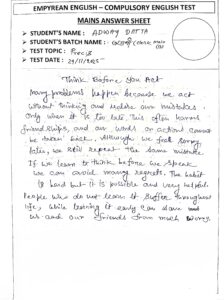 EMPYREAN ENGLISH – COMPULSORY ENGLISH TEST
MAINS ANSWER SHEET
STUDENT'S NAME : ADWAY DATTA
STUDENT'S BATCH NAME :
TEST TOPIC : Precis
TEST DATE :
Think Before You Act
Many problems happen because we act
without thinking and realise our mistakes
only when it is too late. This often harms
friendships, and our words or actions cannot
be taken back. Although we feel sorry
later, we still repeat the same mistake
If we learn to think before we speak
we can avoid many regrets. The habit
is hard but it is possible and very helpful
People who do not learn it suffer throughout
life, while learning it early can save
us and our friends from much worry.